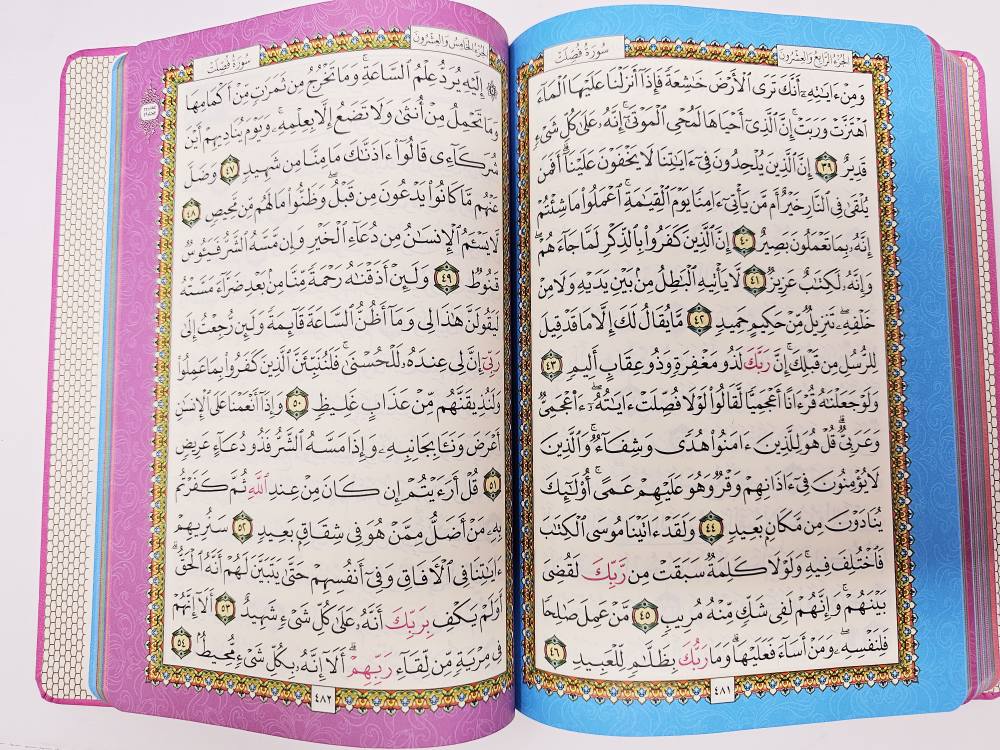 الجزء الرابع والعشرون
سورة فصلت
وَمِنْ ءَايَٰتِهِۦٓ أَنَّكَ تَرَى ٱلْأَرْضَ خَٰشِعَةً فَإِذَآ أَنزَلْنَا عَلَيْهَا ٱلْمَآءَ
ٱهْتَزَّتْ وَرَبَتْ ۚ إِنَّ ٱلَّذِىٓ أَحْيَاهَا لَمُحْىِ ٱلْمَوْتَىٰٓ ۚ إِنَّهُۥ عَلَىٰ كُلِّ شَىْءٍ
قَدِيرٌ ٣٩ إِنَّ ٱلَّذِينَ يُلْحِدُونَ فِىٓ ءَايَٰتِنَا لَا يَخْفَوْنَ عَلَيْنَآ ۗ أَفَمَن
يُلْقَىٰ فِى ٱلنَّارِ خَيْرٌ أَم مَّن يَأْتِىٓ ءَامِنًا يَوْمَ ٱلْقِيَٰمَةِ ۚ ٱعْمَلُوا۟ مَا شِئْتُمْ
إِنَّهُۥ بِمَا تَعْمَلُونَ بَصِيرٌ ٤٠ إِنَّ ٱلَّذِينَ كَفَرُوا۟ بِٱلذِّكْرِ لَمَّا جَآءَهُمْ ۖ
وَإِنَّهُۥ لَكِتَٰبٌ عَزِيزٌ ٤١ لَّا يَأْتِيهِ ٱلْبَٰطِلُ مِنۢ بَيْنِ يَدَيْهِ وَلَا مِنْ
خَلْفِهِۦ ۖ تَنزِيلٌ مِّنْ حَكِيمٍ حَمِيدٍ ٤٢ مَّا يُقَالُ لَكَ إِلَّا مَا قَدْ قِيلَ
لِلرُّسُلِ مِن قَبْلِكَ ۚ إِنَّ رَبَّكَ لَذُو مَغْفِرَةٍ وَذُو عِقَابٍ أَلِيمٍ ٤٣
وَلَوْ جَعَلْنَٰهُ قُرْءَانًا أَعْجَمِيًّا لَّقَالُوا۟ لَوْلَا فُصِّلَتْ ءَايَٰتُهُۥٓ ۖ ءَا۬عْجَمِىٌّ
وَعَرَبِىٌّ ۗ قُلْ هُوَ لِلَّذِينَ ءَامَنُوا۟ هُدًى وَشِفَآءٌ ۖ وَٱلَّذِينَ
لَا يُؤْمِنُونَ فِىٓ ءَاذَانِهِمْ وَقْرٌ وَهُوَ عَلَيْهِمْ عَمًى ۚ أُو۟لَٰٓئِكَ
يُنَادَوْنَ مِن مَّكَانٍۭ بَعِيدٍ ٤٤ وَلَقَدْ ءَاتَيْنَا مُوسَى ٱلْكِتَٰبَ
فَٱخْتُلِفَ فِيهِ ۗ وَلَوْلَا كَلِمَةٌ سَبَقَتْ مِن رَّبِّكَ لَقُضِىَ
بَيْنَهُمْ ۚ وَإِنَّهُمْ لَفِى شَكٍّ مِّنْهُ مُرِيبٍ ٤٥ مَّنْ عَمِلَ صَٰلِحًا
فَلِنَفْسِهِۦ ۖ وَمَنْ أَسَآءَ فَعَلَيْهَا ۗ وَمَا رَبُّكَ بِظَلَّٰمٍ لِّلْعَبِيدِ ٤٦
٤٨١
الجزء الخامس والعشرون
سورة فصلت
إِلَيْهِ يُرَدُّ عِلْمُ ٱلسَّاعَةِ ۚ وَمَا تَخْرُجُ مِن ثَمَرَٰتٍ مِّنْ أَكْمَامِهَا
وَمَا تَحْمِلُ مِنْ أُنثَىٰ وَلَا تَضَعُ إِلَّا بِعِلْمِهِۦ ۚ وَيَوْمَ يُنَادِيهِمْ أَيْنَ
شُرَكَآءِى قَالُوٓا۟ ءَاذَنَّٰكَ مَا مِنَّا مِن شَهِيدٍ ٤٧ وَضَلَّ
عَنْهُم مَّا كَانُوا۟ يَدْعُونَ مِن قَبْلُ ۖ وَظَنُّوا۟ مَا لَهُم مِّن مَّحِيصٍ ٤٨
لَّا يَسْـَٔمُ ٱلْإِنسَٰنُ مِن دُعَآءِ ٱلْخَيْرِ وَإِن مَّسَّهُ ٱلشَّرُّ فَيَـُٔوسٌ
قَنُوطٌ ٤٩ وَلَئِنْ أَذَقْنَٰهُ رَحْمَةً مِّنَّا مِنۢ بَعْدِ ضَرَّآءَ مَسَّتْهُ
لَيَقُولَنَّ هَٰذَا لِى وَمَآ أَظُنُّ ٱلسَّاعَةَ قَآئِمَةً وَلَئِن رُّجِعْتُ إِلَىٰ
رَبِّىٓ إِنَّ لِى عِندَهُۥ لَلْحُسْنَىٰ ۚ فَلَنُنَبِّئَنَّ ٱلَّذِينَ كَفَرُوا۟ بِمَا عَمِلُوا۟
وَلَنُذِيقَنَّهُم مِّنْ عَذَابٍ غَلِيظٍ ٥٠ وَإِذَآ أَنْعَمْنَا عَلَى ٱلْإِنسَٰنِ
أَعْرَضَ وَنَـَٔا بِجَانِبِهِۦ وَإِذَا مَسَّهُ ٱلشَّرُّ فَذُو دُعَآءٍ عَرِيضٍ
٥١ قُلْ أَرَءَيْتُمْ إِن كَانَ مِنْ عِندِ ٱللَّهِ ثُمَّ كَفَرْتُم
بِهِۦ مَنْ أَضَلُّ مِمَّنْ هُوَ فِى شِقَاقٍۭ بَعِيدٍ ٥٢ سَنُرِيهِمْ
ءَايَٰتِنَا فِى ٱلْءَافَاقِ وَفِىٓ أَنفُسِهِمْ حَتَّىٰ يَتَبَيَّنَ لَهُمْ أَنَّهُ ٱلْحَقُّ ۗ
أَوَلَمْ يَكْفِ بِرَبِّكَ أَنَّهُۥ عَلَىٰ كُلِّ شَىْءٍ شَهِيدٌ ٥٣ أَلَآ إِنَّهُمْ
فِى مِرْيَةٍ مِّن لِّقَآءِ رَبِّهِمْ ۗ أَلَآ إِنَّهُۥ بِكُلِّ شَىْءٍ مُّحِيطٌۢ ٥٤
٤٨٢